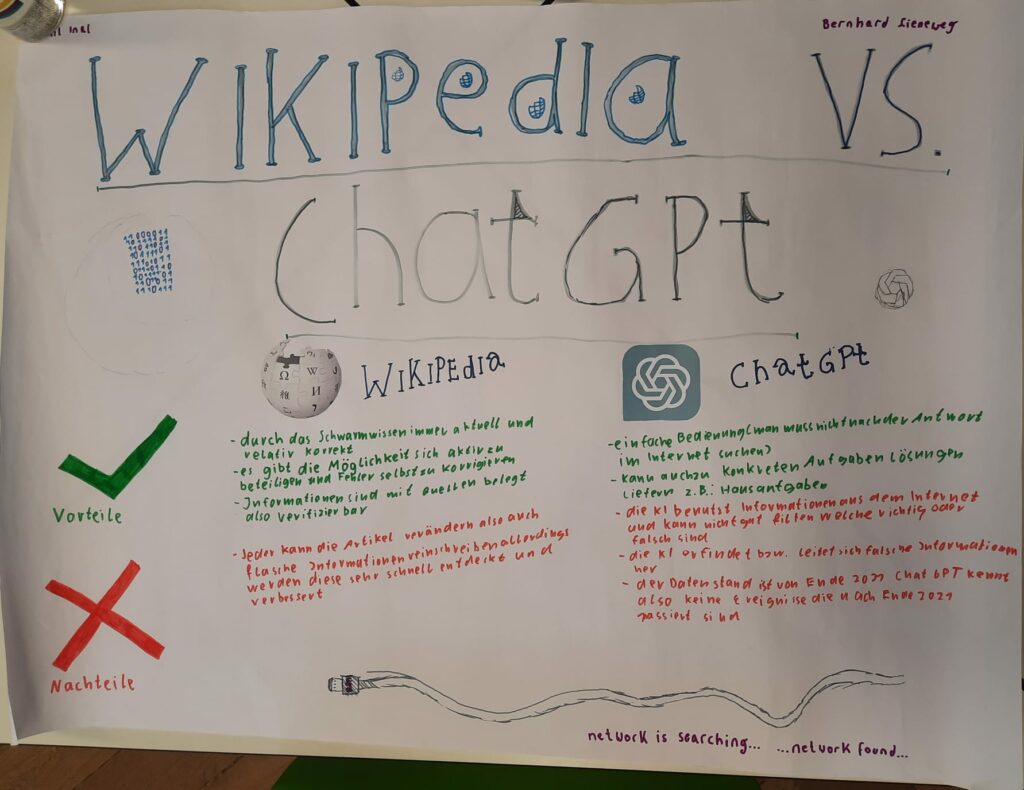 Inal
Bernhard Lieneweg
WIKIPedIA VS.
ChatGPt
WIKIPEdIA
ChatGPt
Vorteile
- durch das Schwarmwissen immer aktuell und
relativ korrekt
- es gibt die Möglichkeit sich aktiv zu
beteiligen und Fehler selbst zu korrigieren
- Informationen sind mit Quellen belegt
also verifizierbar
- einfache Bedienung (man muss nicht nach der Antwort
im Internet suchen)
- kann auch zu konkreten Aufgaben Lösungen
liefern z.B.: Hausaufgaben
Nachteile
- Jeder kann die Artikel verändern also auch
flasche Informationen reinschreiben allerdings
werden diese sehr schnell entdeckt und
verbessert
- die KI benutzt Informationen aus dem Internet
und kann nicht gut filten welche richtig oder
falsch sind
- die KI erfindet bzw. leitet sich falsche Informationen
her
- der Datenstand ist von Ende 2021 Chat GPT kennt
also keine Ereignisse die nach Ende 2021
passiert sind
network is searching... ...network found...